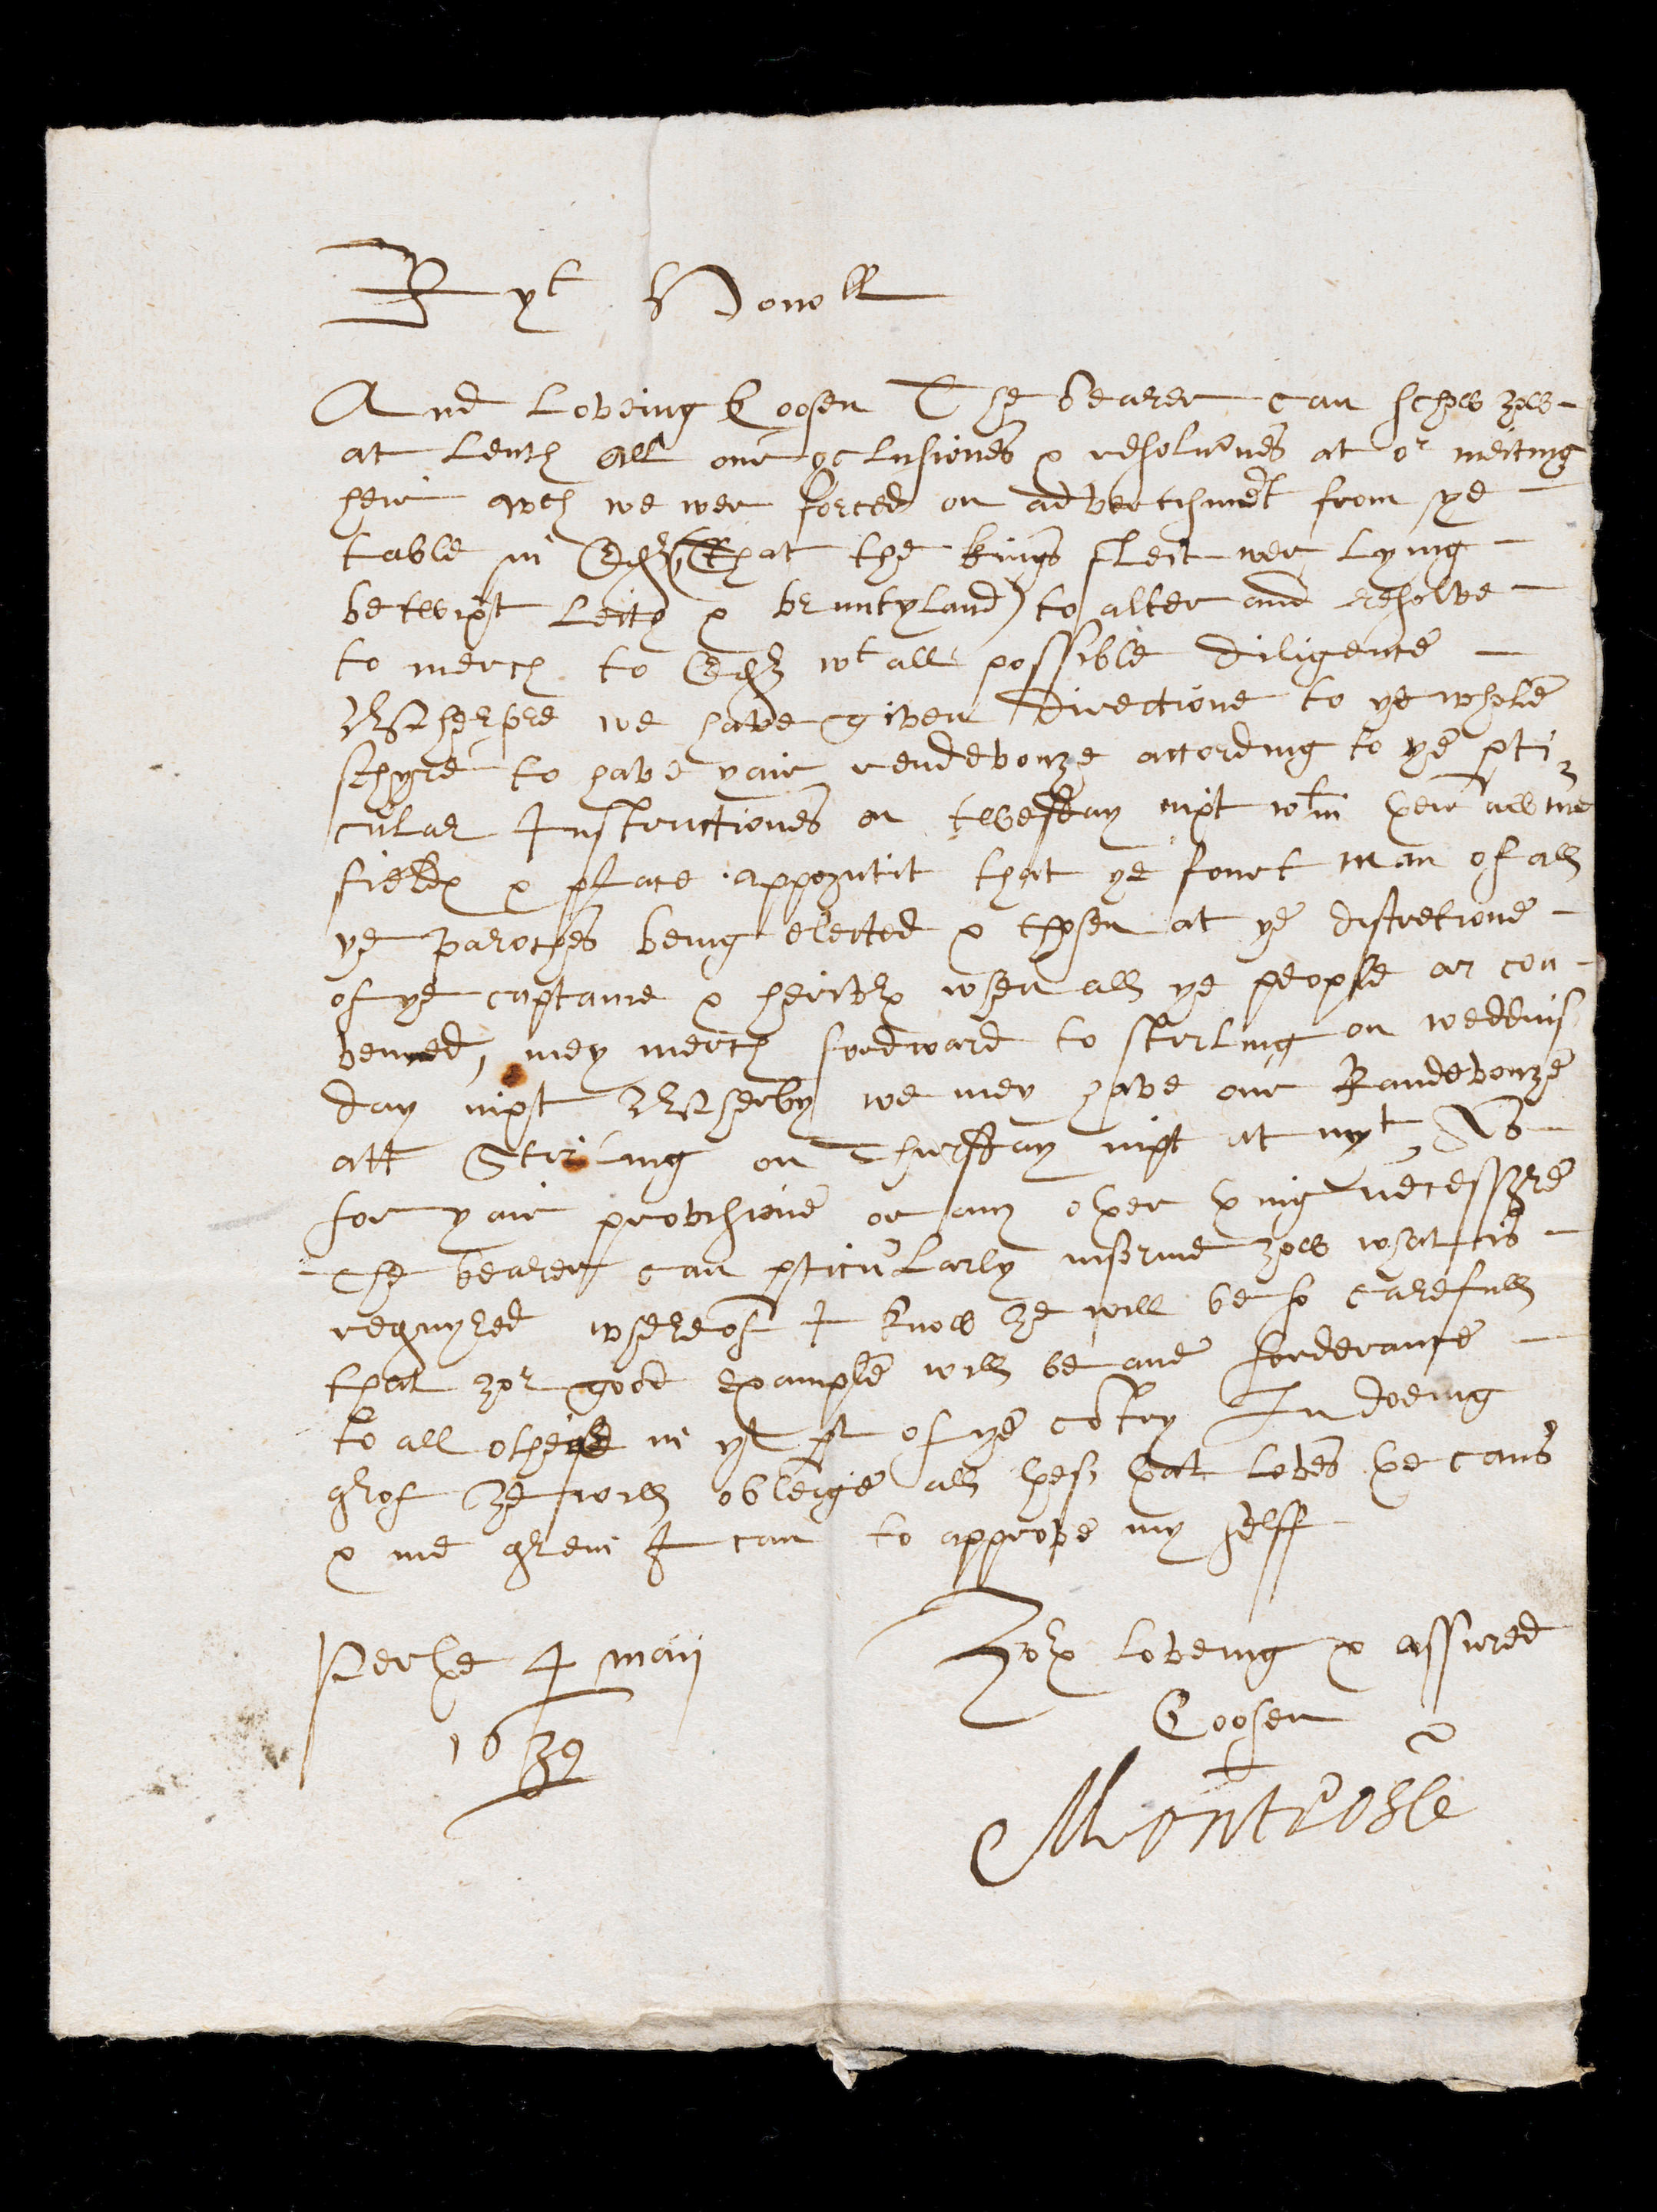 Ryt Honoll
And Loveing Coosen The bearer can schew zow
at Lenth all our coclusiones & resolutiones at or meiting
heir qwch we wer forced on advertisment from ye
table in Edr (That the kings fleit wer Lying
betwixt Leith & bruntyland) to alter and resolve
to merch to Edr wt all possible diligence
we have given directione to ye whole
schyre to have yair rendevouze according to ye pti
cular Instructiones on twesday nixt wtin
& place appoyntit that ye fourt man of all
ye paroches being elected & chosen at ye discretione
of ye captaine & when all ye people ar con
vened, mey merch fordward to sterling on weddnis
day nixt we mey have our Randevouze
att Stirling on Thursday nixt at nyt, As
for yair provisione or any oyer ying necessyre
The bearer can pticularly informe zow what is
requyred whereof I know ze will be so carefull
that zor good example will be ane forderance
to all in yt pt of ye cotry In doeing
qrof ze will obleige all yes yat loves ye caus
& me qrein I can to approve my selff
Zors Loveing & assured
Coosen
Perthe 4 maij
1639
Montrose